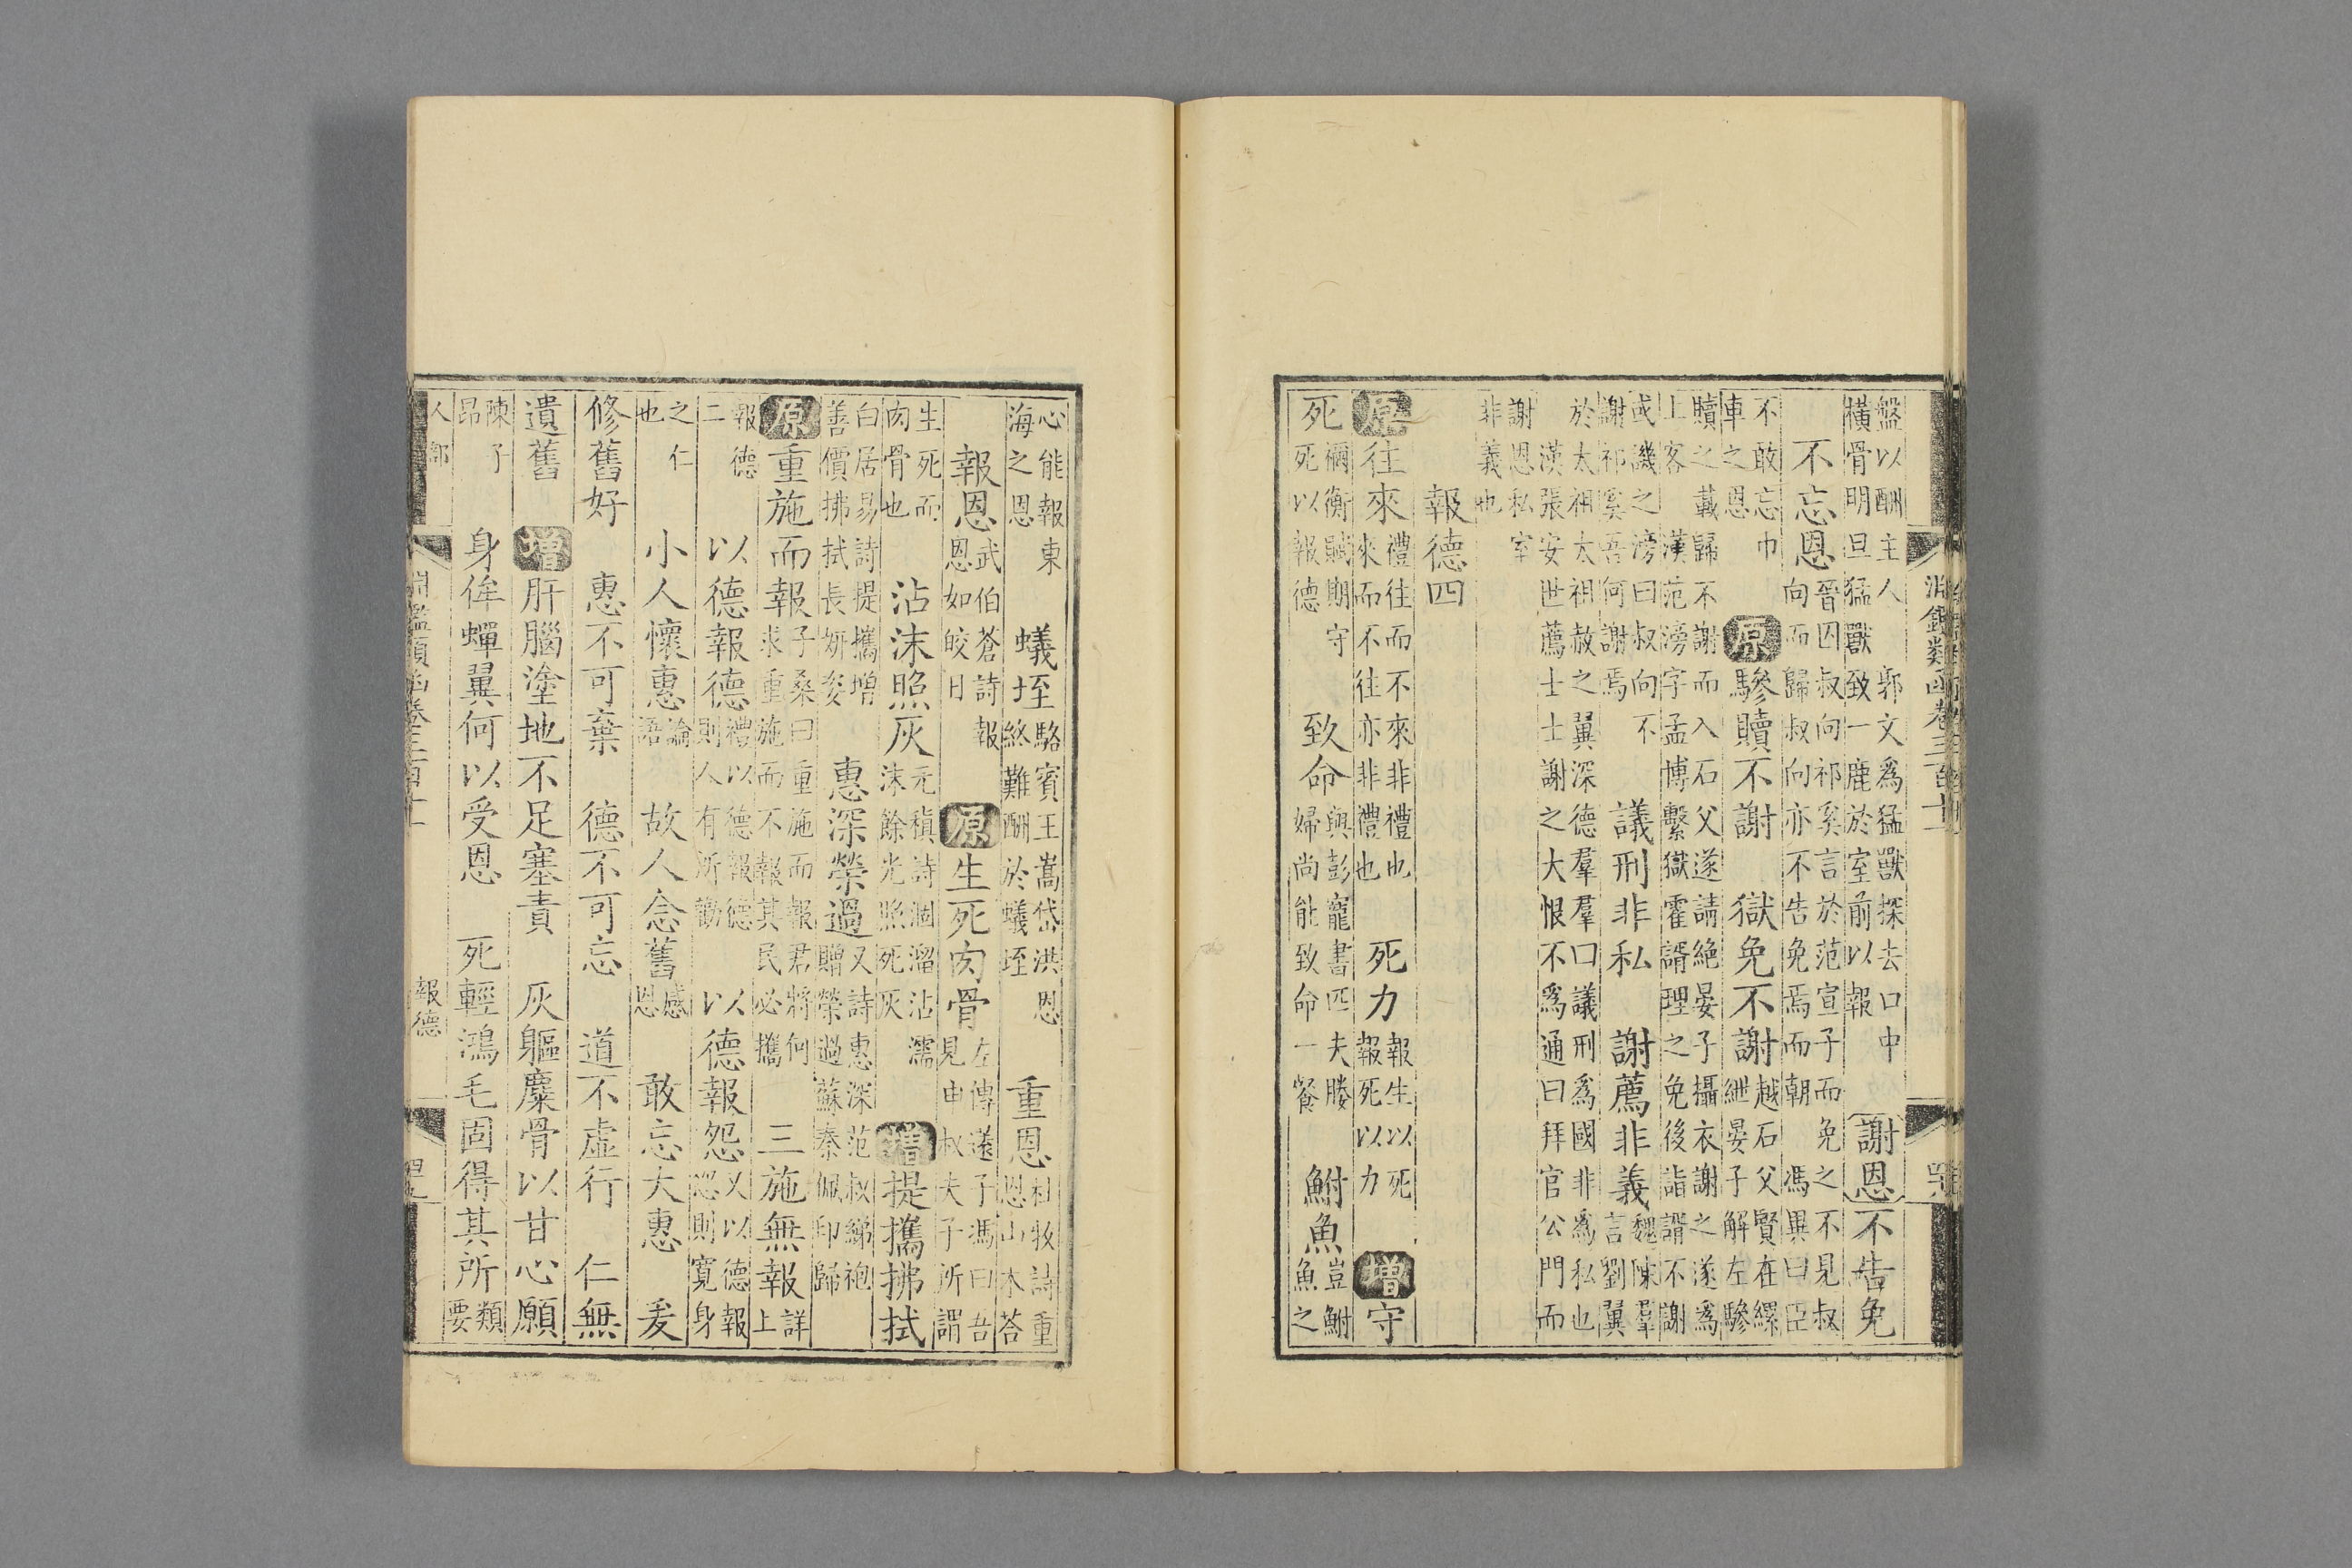 淵鑑類函卷三百十一
盤以酬主人 郭文爲猛獸探去口中
橫骨明旦猛獸致一鹿於室前以報 謝恩不告免
不忘恩 晉囚叔向祁奚言於范宣子而免之不見叔
向而歸叔向亦不告免焉而朝 馮異曰臣
不敢忘巾
車之恩 原驂贖不謝 獄免不謝 越石父賢在縲
紲晏子解左驂
贖之載歸不謝而入石父遂請絕晏子攝衣謝之遂爲
上客 漢范滂字孟博繫獄霍諝理之免後詣諝不謝
或譏之滂曰叔向不
謝祁奚吾何謝焉 議刑非私 謝薦非義 魏陳羣
言劉翼
於太祖太祖赦之翼深德羣羣曰議刑爲國非爲私也
漢張安世薦士士謝之大恨不爲通曰拜官公門而
謝恩私室
非義也
報德四
原往來 禮往而不來非禮也
來而不往亦非禮也 死力 報生以死
報死以力 增守
死 禰衡賦期守
死以報德 致命 與彭寵書匹夫媵
婦尚能致命一餐 鮒魚 豈鮒
魚之
心能報東
海之恩 蟻垤 駱賓王嵩岱洪恩
終難酬於蟻垤 重恩 杜牧詩重
恩山木荅
報恩 武伯蒼詩報
恩如皎日 原生死肉骨 左傳薳子馮曰吾
見申叔夫子所謂
生死而
肉骨也 沾沫照灰 元稹詩涸溜沾濡
沫餘光照死灰 增提攜拂拭
白居易詩提攜增
善價拂拭長妍姿 惠深榮過 又詩惠深范叔綈袍
贈榮過蘇秦佩印歸
原重施而報 子桑曰重施而報君將何
求重施而不報其民必攜 三施無報 詳
上
報德
二 以德報德 禮以德報德
則人有所勸 以德報怨 又以德報
怨則寬身
之仁
也 小人懷惠 論
語 故人念舊 感
恩 敢忘大惠 爰
修舊好 惠不可棄 德不可忘 道不虛行 仁無
遺舊 增肝腦塗地不足塞責 灰軀麋骨以甘心願
陳子
昂 身侔蟬翼何以受恩 死輕鴻毛固得其所 類
要
人部 淵鑑類函卷三百十一 報德